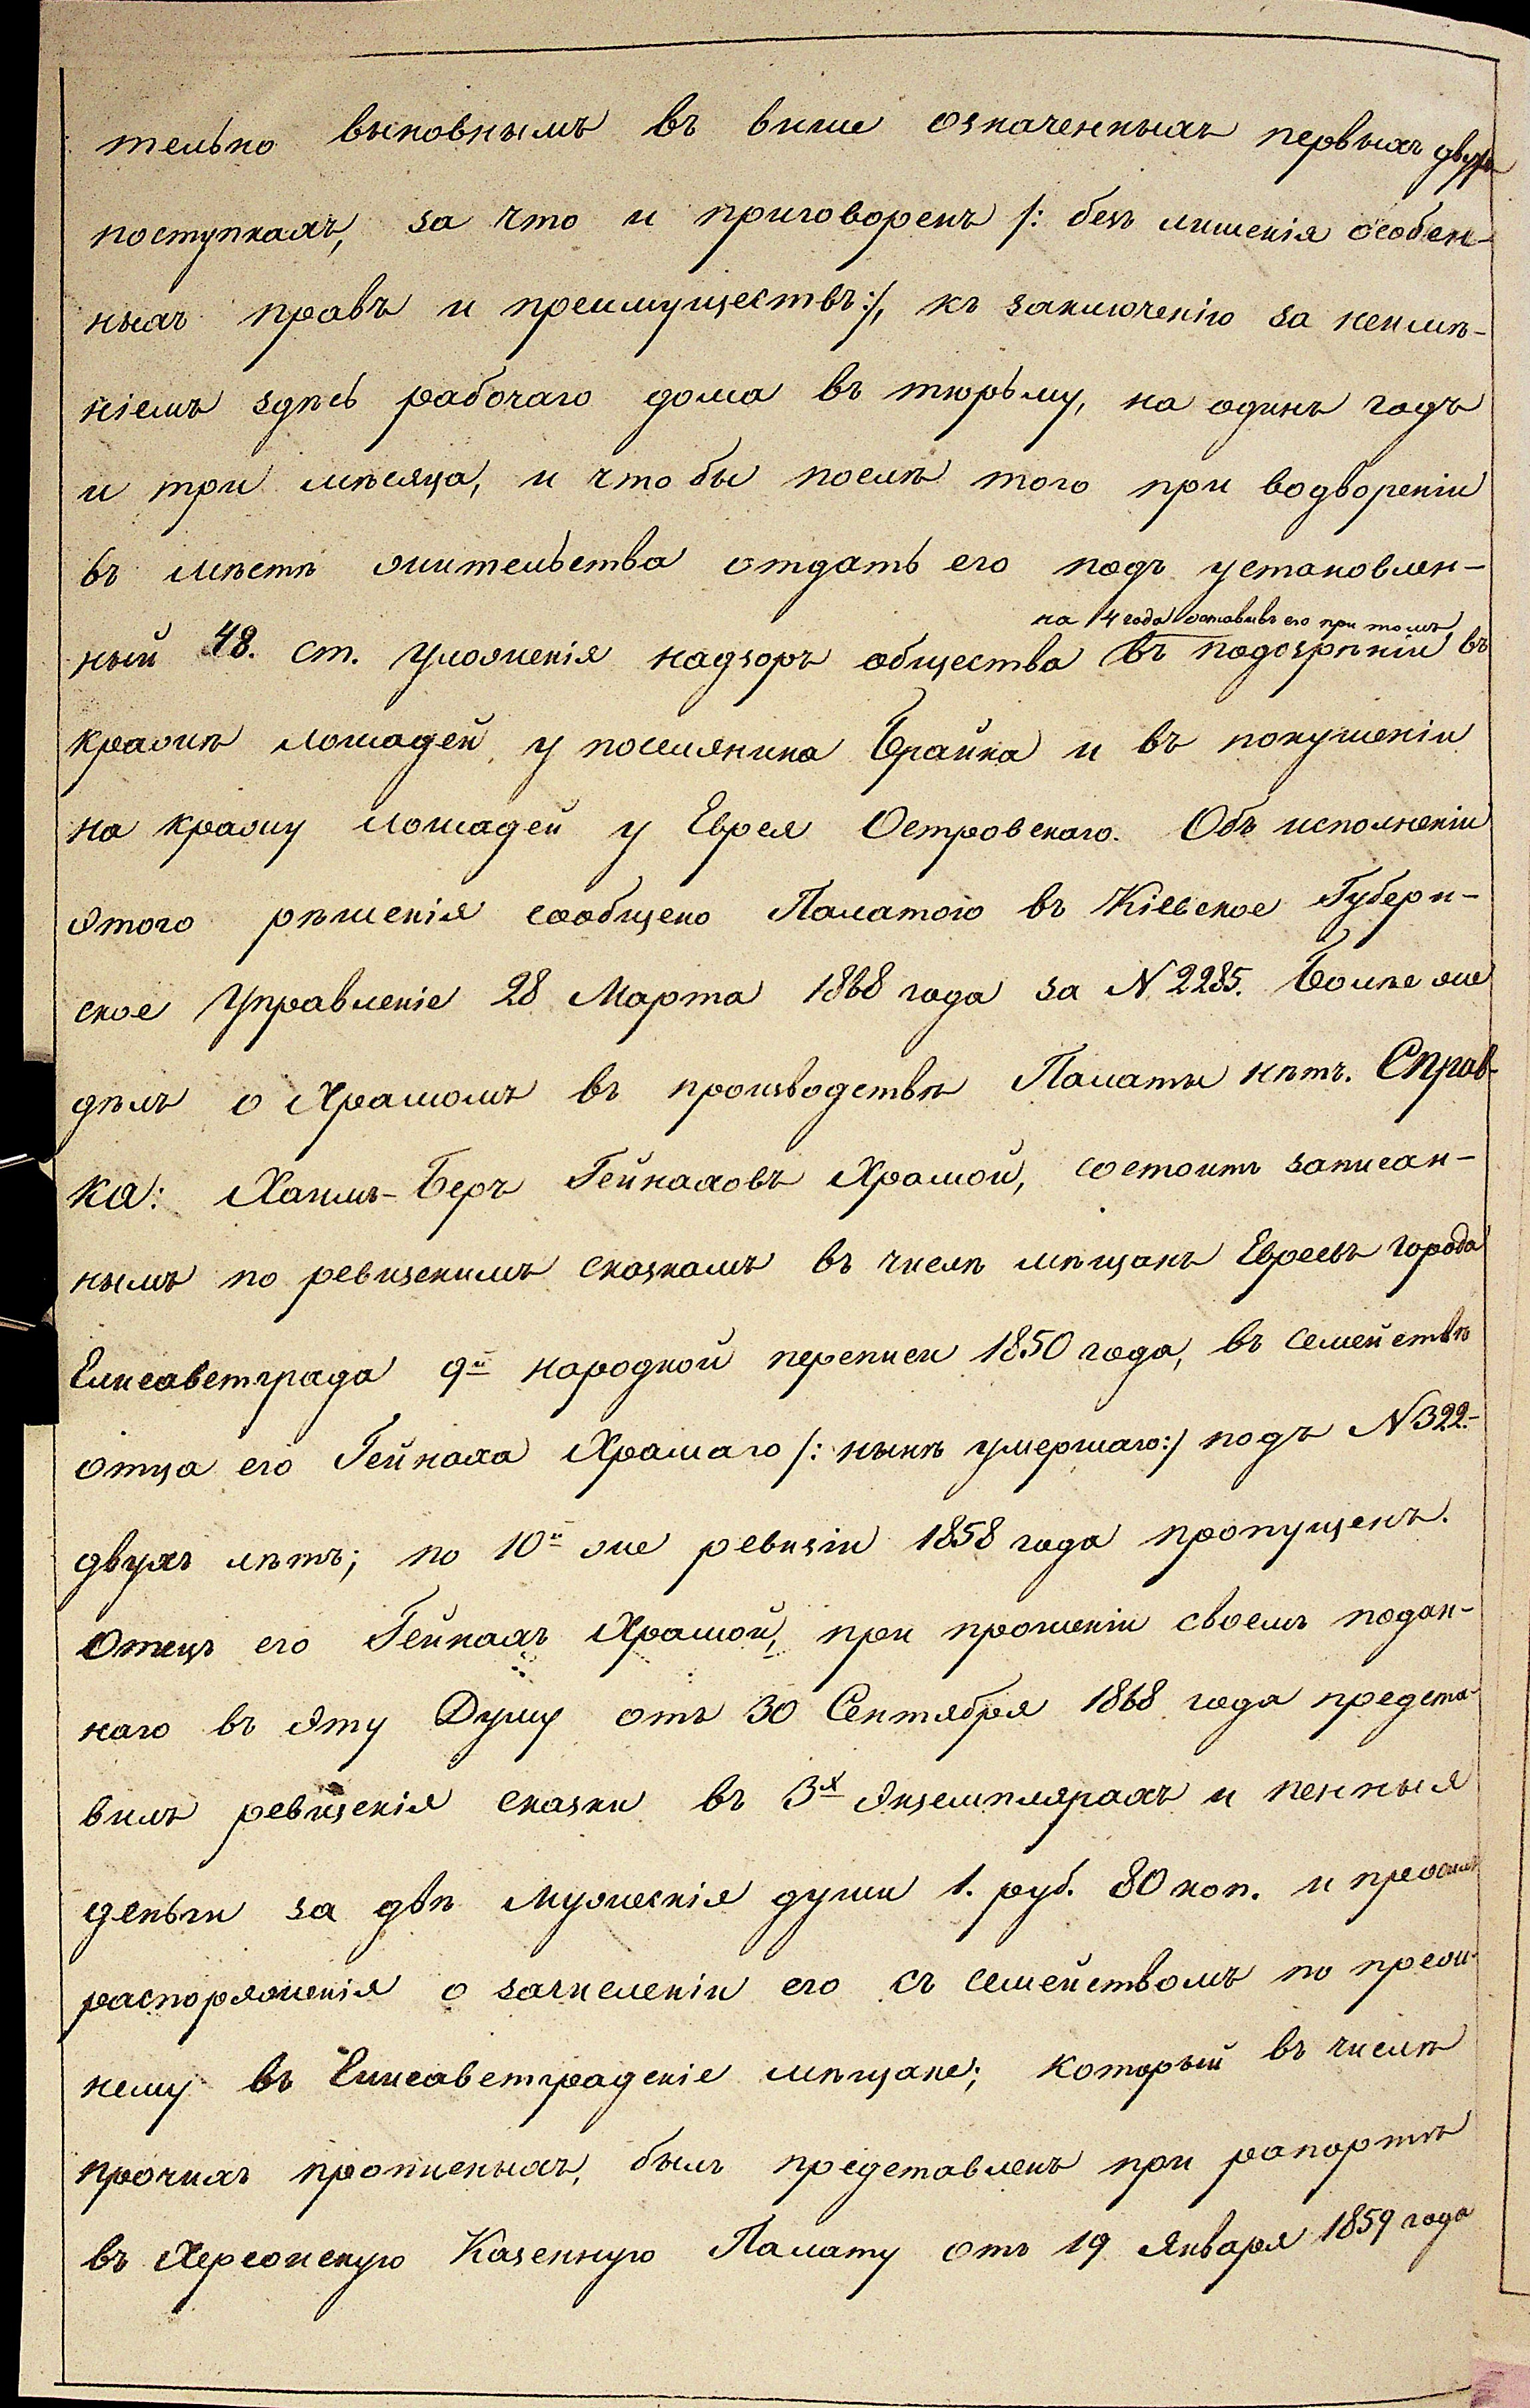 тельно выновнымъ въ выше означенныхъ первыхъ двухъ
поступкахъ, за что и приговоренъ /: безъ лишенія особен-
ныхъ правъ и преимуществъ:/, къ заключенію за неимѣ-
ніемъ здѣсь рабочаго дома въ тюрьму, на одинъ годъ
и три мѣсяца, и что бы послѣ того при водвореніи
въ мѣстѣ жительства отдать его подъ установлен-
на 4 года оставивъ его при томъ
ный 48. ст. Уложенія надзоръ общества въ подозрѣніи въ
кражѣ лошадей у поселянина Брайка и въ покушеніи
на кражу лошадей у Еврея Островскаго. Объ исполненіи
этого рѣшенія сообщено Палатою въ Кіевское Губерн-
ское Управленіе 28 Марта 1868 года за N 2285. Болѣе же
дѣлъ о Храмомъ въ производствѣ Палаты нѣтъ. Справ-
ка: Хаимъ-Беръ Гейнаховъ Храмой, состоитъ записан-
нымъ по ревизскимъ сказкамъ въ числѣ мѣщанъ Евреевъ города
Елисаветграда 9й народной переписи 1850 года, въ семействѣ
отца его Гейнаха Храмаго /: нынѣ умершаго:/ подъ N 322.-
двухъ лѣтъ; по 10й же ревизіи 1858 года пропущенъ.
Отецъ его Гейнахъ Храмой, при прошеніи своемъ подан-
наго въ эту Думу отъ 30 Сентября 1868 года предста-
вилъ ревизскія сказки въ 3х экземплярахъ и пенныя
деньги за двѣ мужескія души 1. руб. 80 коп. и просилъ
распоряженія о зачисленіи его съ семействомъ по преж-
нему въ Елисаветградскіе мѣщане; который въ числѣ
прочихъ прописныхъ, былъ представленъ при рапортѣ
въ Херсонскую Казенную Палату отъ 19 Января 1859 года